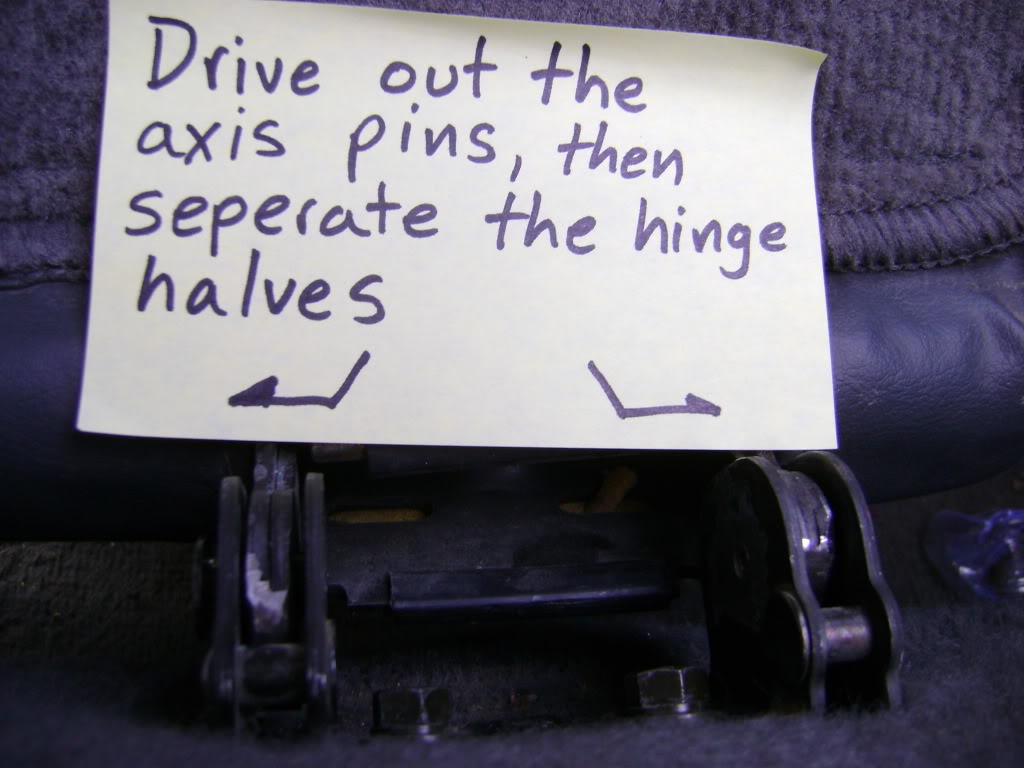 Drive out the
axis pins, then
seperate the hinge
halves